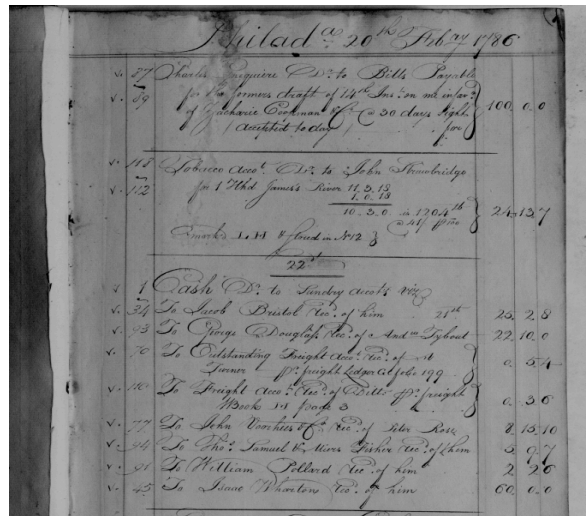 Philada 20th Febay 1786
v. 77 Charles Esquiere Dr. to Bills Payable
v. 89 for the formers draft of 14th Inst. on me in favr.
of Zacharie Coopman & Co. @ 30 days Sight
(accepted to day) for } 100. 0. 0
v. 118 Tobacco Acct. Dr. to John Strawbridge
v. 112 for 1 Hhd James River 11.3.18
1.0.18
10.3.0 in 1204 lb
@ 41/ } 24.13.7
Stored in No 12
22d
v. 1 Cash Dr. to Sundry Accots. viz
v. 34 To Jacob Bristol Recd. of him 21st 25. 2. 8
v. 93 To George Douglass Recd. of Andw Tybout 22. 10. 0
v. 70 To Outstanding Freight Acct. Recd. of
Turner pr. freight Ledger A folio 199 } 0. 5. 4
v. To Freight Acct. Recd. of Bitts pr. freight
Book page 3 } 0. 3. 6
v. 77 To John Voorhees & Co. Recd. of Peter Rose 8. 15. 10
v. 94 To Thos. Samuel & Miers Fisher Recd. of them 5. 9. 7
v. 91 To William Pollard Recd. of him 2. 2. 6
v. 45 To Isaac Wharton Recd. of him 60. 0. 0